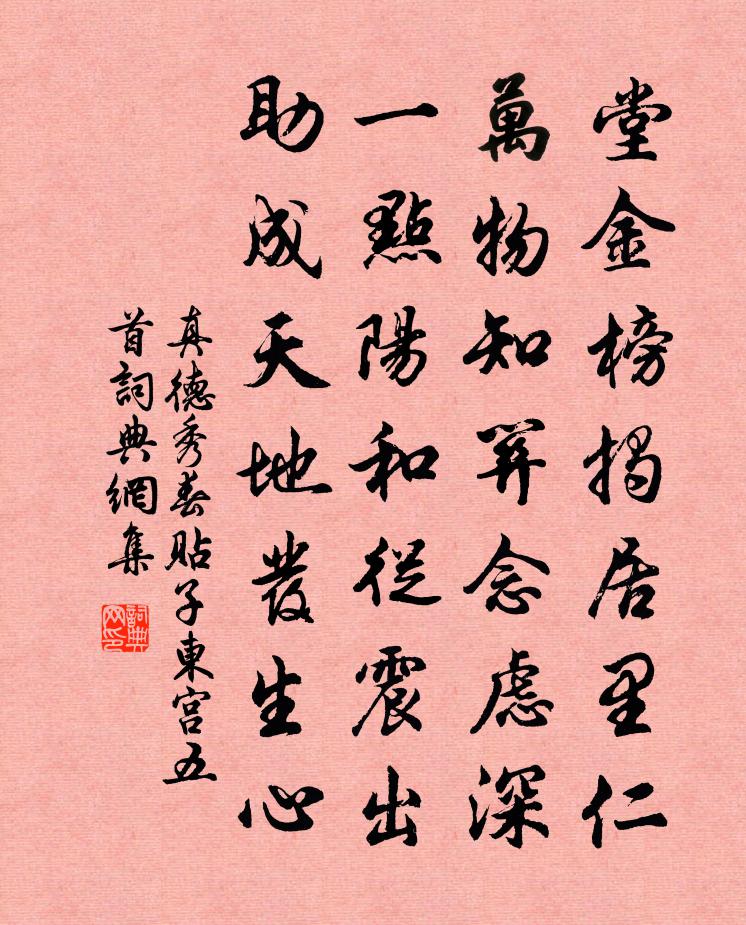 堂金榜揭居里仁
萬物知關念慮深
一點陽和從震出
助成天地發生心
真德秀春貼子東宮五
首詞典網集
詞典网印